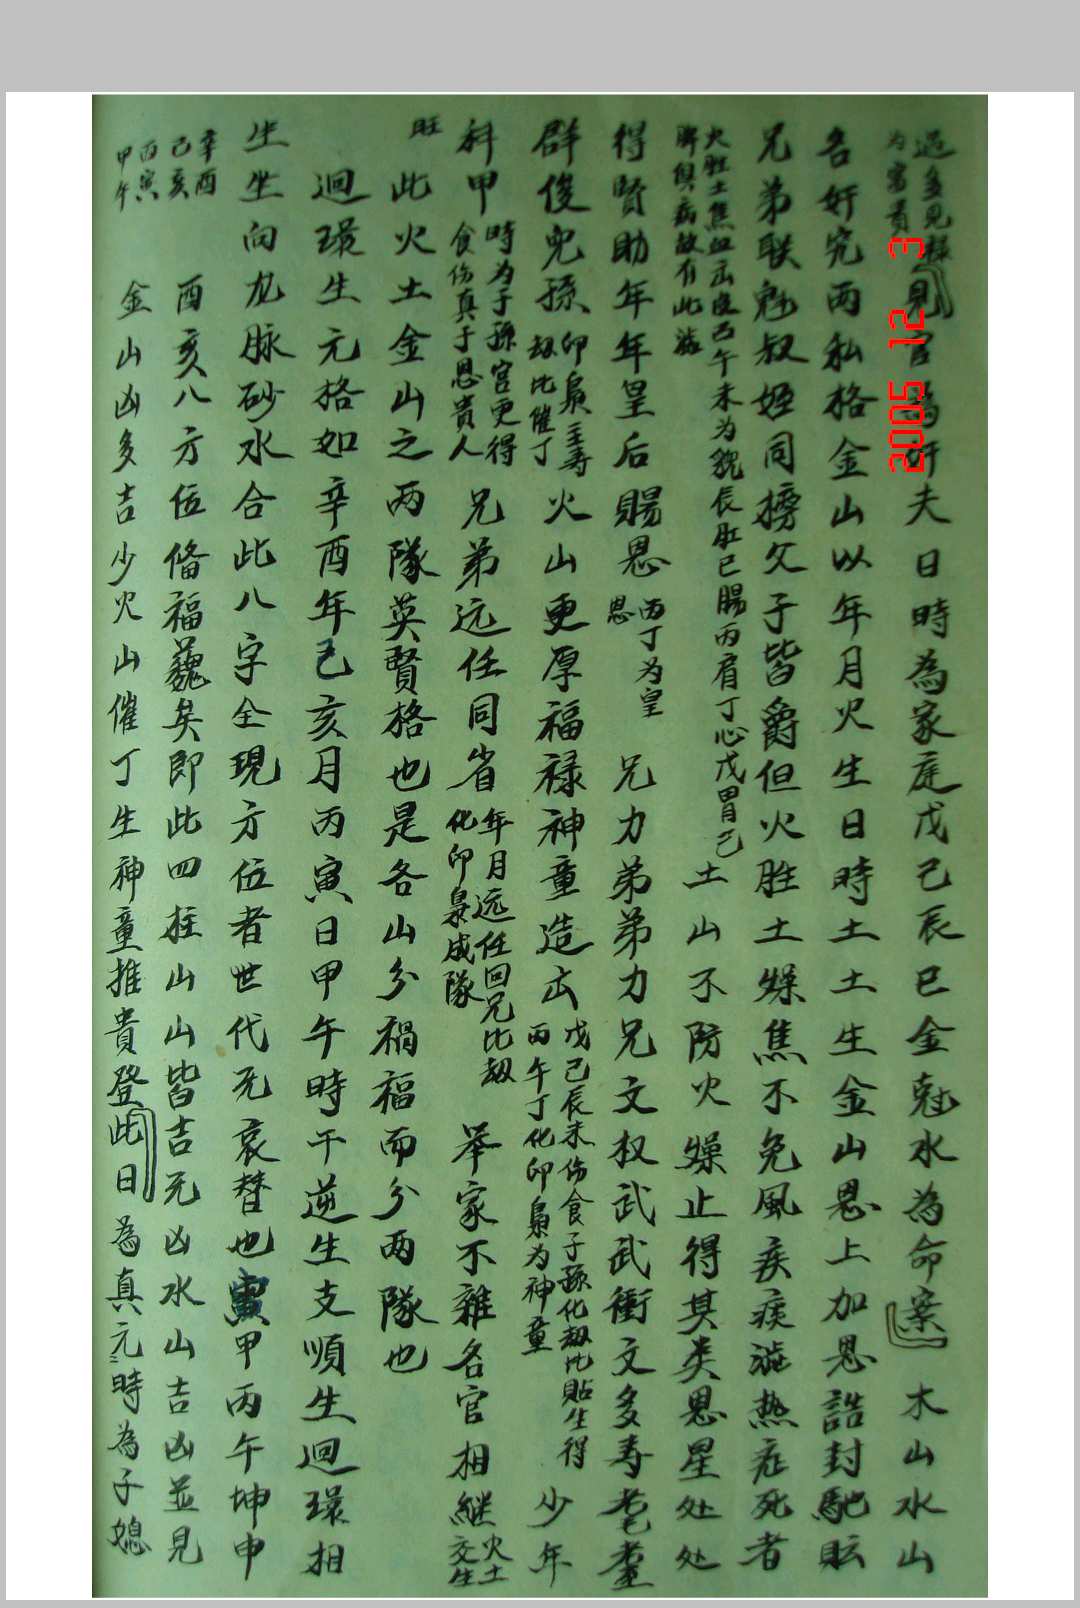 過多見祿為富貴見官為奸夫日時為家庭戊己辰巳金尅水為命案 木山水山
名奸究兩私格金山以年月火生日時土土生金山恩上加恩誥封馳
兄弟联魁叔姪同搒父子皆爵但火胜土燥焦不免風疾痰熱症死者
火胜土焦血 午未为 辰肚巳腸丙肩丁心戊胃己
脾與病故有此
土山不防火燥止得其类恩星处处
得賢助年年皇后賜恩 丙丁为皇恩 兄力弟弟力兄文权武武衝文多寿耄耋
群俊兒孫 卯梟主寿劫比催丁 火山更厚福禄神童造出 戊己辰未伤食子孫化劫比貼生得丙午丁化印梟为神童 少年
科甲 時为子孫宫更得食伤真子恩貴人 兄弟远任同省 年月远任回兄比劫化印梟成隊 举家不雜各官相継 火土交生
旺 此火土金山之两隊英賢格也是各山分禍福而分两隊也
迴環生元格如辛酉年己亥月丙寅日甲午時干逆生支順生迴環相
生生向龙脉砂水合此八字全現方位者世代无哀替也 甲丙午坤申
辛酉
己亥
丙寅
甲午
酉亥八方位俻福巍矣即此四拄山山皆吉无凶水山吉凶並見
金山凶多吉少火山催丁生神童推貴登此日為真元時為子媳